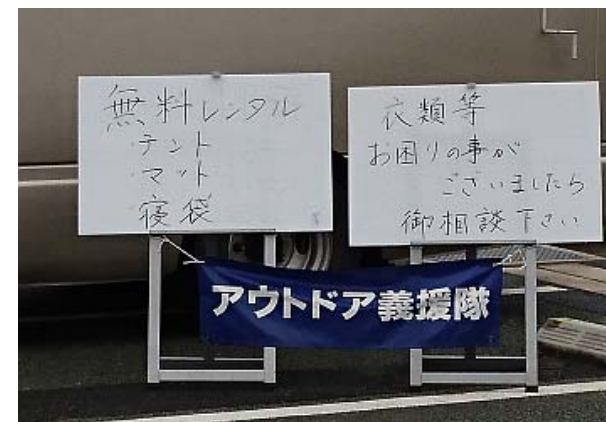 無料レンタル
・テント
・マット
・寝袋
衣類等
お困りの事が
ございましたら
御相談下さい
アウトドア義援隊